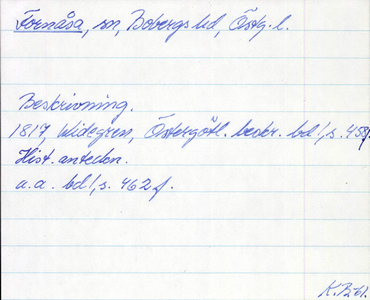 Fornåsa, sn, Bobergs hd, Östg. l.
Beskrivning.
1817, Widegren, Östergötl. beskr. bd 1, s. 459.
Hist. anteckn.
a.a. bd 1, s. 462 f.